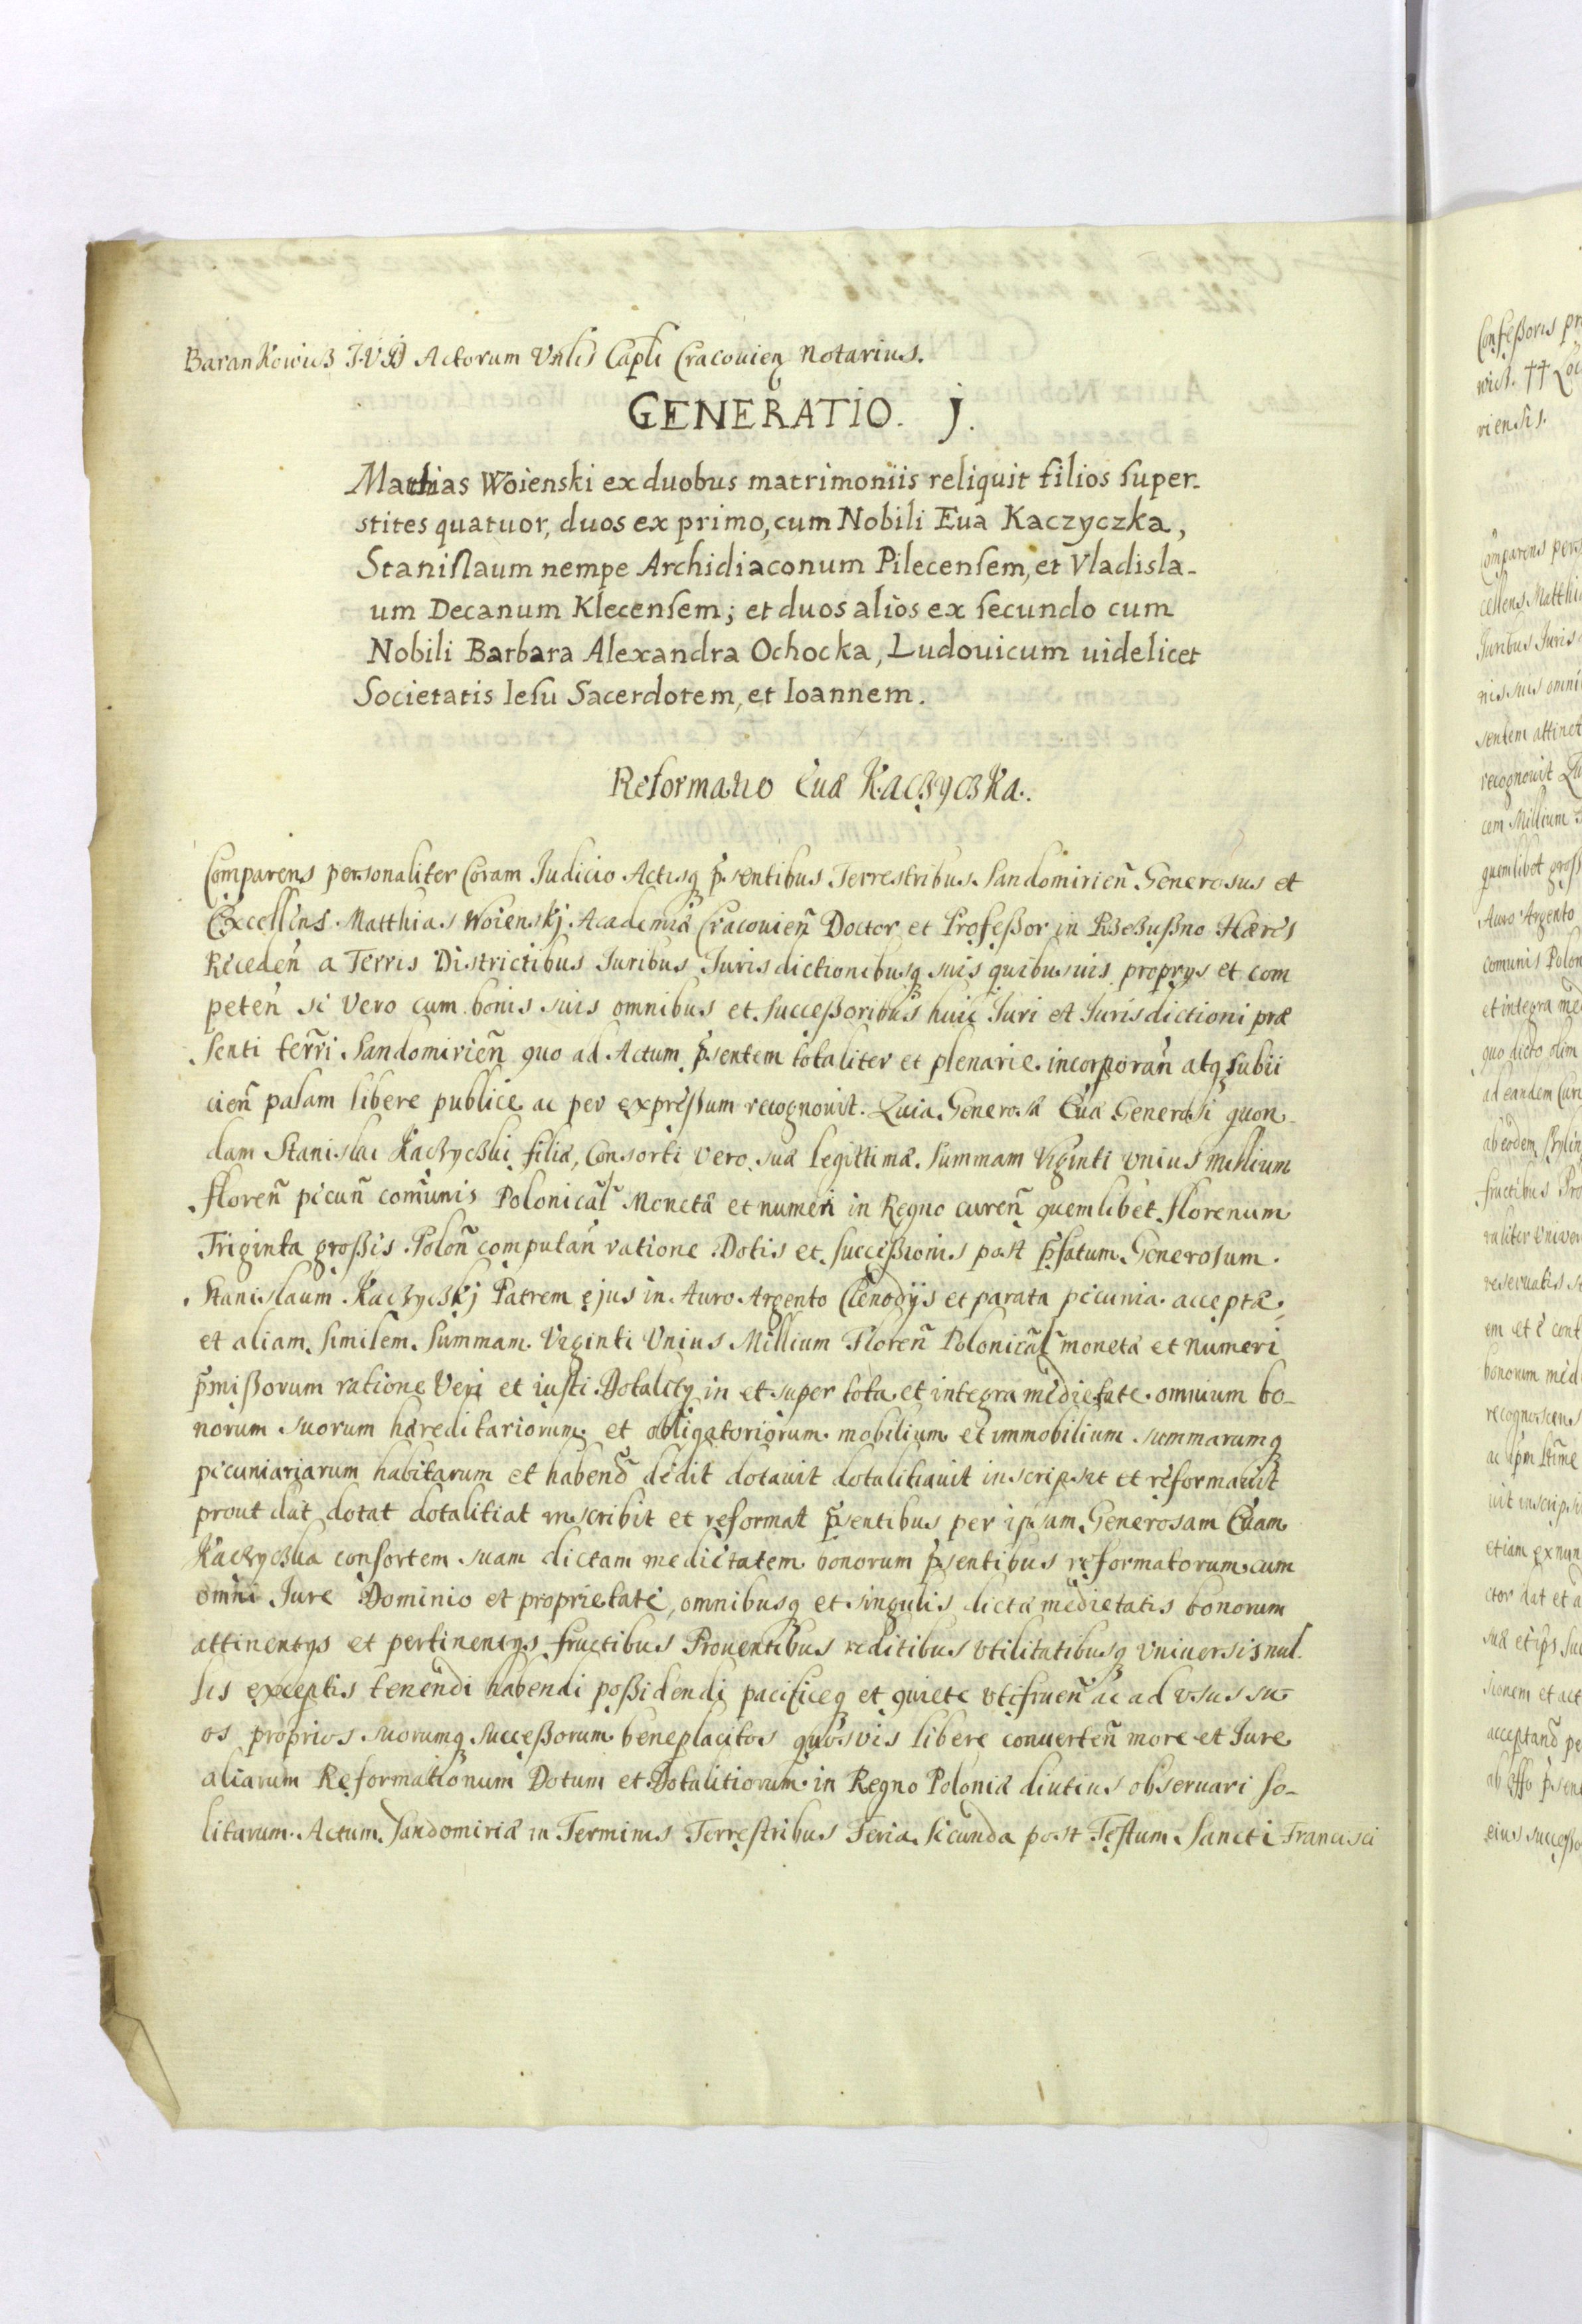 Barankowicz J.V.D Actorum Vnlis Capli Cracouien Notarius.
GENERATIO. j.
Mathias Woienski ex duobus matrimoniis reliquit filios super-
stites quatuor, duos ex primo, cum Nobili Eua Kaczyczka,
Stanislaum nempe Archidiaconum Pilecensem, et Vladisla-
um Decanum Klecensem; et duos alios ex secundo cum
Nobili Barbara Alexandra Ochocka, Ludouicum uidelicet
Societatis Iesu Sacerdotem, et Ioannem.
Reformatio Euæ Kaczyczka.
Comparens personaliter Coram Iudicio Actisq p̃sentibus Terrestribus Sandomirien̄ Generosus et
Excellens Matthias Woienskj Academiæ Cracouien̄ Doctor et Profeßor in Hæres
Receden̄ a Terris Districtibus Iuribus Iurisdictionibusq suis quibusuis proprys et com
peten̄ se Vero cum bonis suis omnibus et Succeßoribus huic Iuri et Iurisdictioni præ
senti terr̃i Sandomirien̄ quo ad Actum p̃sentem totaliter et plenarie incorporan̄ atq subii
cien̄ palam libere publice ac per expreßum recognouit. Quia Generosæ Euæ Generosi quon-
dam Stanislai Kaczyczki filiæ, Consorti Vero suæ legittimæ summam Viginti Vnius millium
floren̄ picun̄ com̄unis Polonical̃ Monetæ et numeri in Regno curen̄ quemlibet florenum
Triginta großis Polon̄ computan̄ ratione Dotis et succeßionis post p̃fatum Generosum
Stanislaum Kaczyczkj Patrem ejus in Auro Argento Clenodijs et parata picunia acceptæ,
et aliam similem Summam Viginti Vnius Millium Floren̄ Polonical̃ monetæ et Numeri
p̃mißorum ratione Veri et iusti Dotality in et super tota et integra medietate omnium bo-
norum suorum hæreditariorum et obligatoriorum mobilium et immobilium summarumq
picuniariarum habitarum et habend̃ dedit dotauit dotalitiauit inscripsit et reformauit
prout dat dotat dotalitiat inscribit et reformat p̃sentibus per ipsam Generosam Euam
Kaczyczka consortem suam dictam medietatem bonorum p̃sentibus reformatorum cum
omni Iure Dominio et proprietate, omnibusq et singulis dictæ medietatis bonorum
attinentys et pertinentys fructibus Prouentibus reditibus vtilitatibusq vniuersis nul-
lis exceptis tenendi habendi poßidendi pacificeq et quiete vtifruen̄ ac ad vsus su-
os proprios suorumq succeßorum beneplacitos quosvis libere conuerten̄ more et Iure
aliarum Reformationum Dotum et Dotalitiorum in Regno Poloniæ diutius obseruari so-
litarum. Actum Sandomiriæ in Terminis Terrestribus Feria Secunda post Festum Sancti Francisci